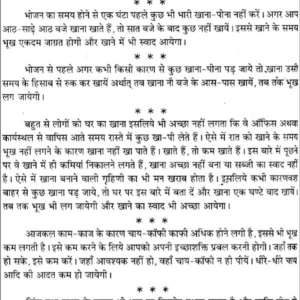 भोजन का समय होने से एक घंटा पहले कुछ भी भारी खाना-पीना नहीं करें। अगर आप
आठ-साढ़े आठ बजे खाना खाते हैं, तो सात बजे के बाद कुछ नहीं खायें। इससे खाने के समय
भूख एकदम जाग्रत होगी और खाने में भी स्वाद आयेगा।
* * *
भोजन से पहले अगर कभी किसी कारण से कुछ खाना-पीना पड़ जाये तो खाना उसी
समय के हिसाब से रुक कर खायें अर्थात् तब खाना नौ बजे के आस-पास खायें, तब तक भूख
लग जायेगी।
* * *
बहुत से लोगों को घर का खाना इसलिये भी अच्छा नहीं लगता कि वे ऑफिस अथवा
कार्यस्थल से वापिस आते समय रास्ते में कुछ खा-पी लेते हैं। ऐसे में रात को खाने के समय
भूख नहीं लगने के कारण खाना नहीं खा पाते हैं। खाते हैं, तो कम खाते हैं। इस बारे में पूछने
पर वे खाने में ही कमियां निकालने लगते हैं, खाना अच्छा नहीं बना या सब्जी का स्वाद नहीं
है। ऐसे में खाना बनाने वाली गृहिणी का भी मन खराब होता है। इसलिये कभी कारणवश
बाहर से कुछ खाना पड़ जाये, तो घर पर इस बारे में बता दें और खाना एक घण्टे बाद खायें।
तब तक भूख भी लग जायेगी और खाने का स्वाद भी अच्छा आयेगा।
* * *
आजकल काम-काज के कारण चाय-कॉफी काफी अधिक होने लगी है, इससे भी भूख
कम लगती है। इसे कम करने के लिये आपको अपनी इच्छाशक्ति प्रबल करनी होगी। जहाँ तक
हो सके, इसे कम करें। जहाँ आवश्यक नहीं हो, वहाँ चाय-कॉफी न ही पीयें। धीरे-धीरे चाय
आदि की आदत कम हो जायेगी।
* * *